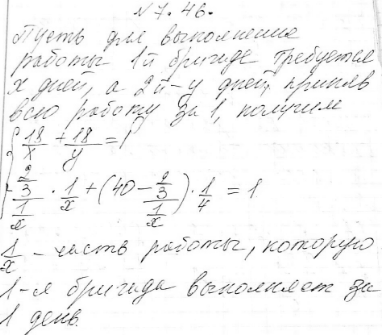 №7.46.
Пусть для выполнения
работы 1й бригаде требуется
x дней, а 2й - y дней, приняв
всю работу за 1, получим
{ 18/x + 18/y = 1
(2/3)/(1/x) · 1/x + (40 - (2/3)/(1/x)) · 1/4 = 1
1/x - часть работы, которую
1-я бригада выполняет за
1 день.